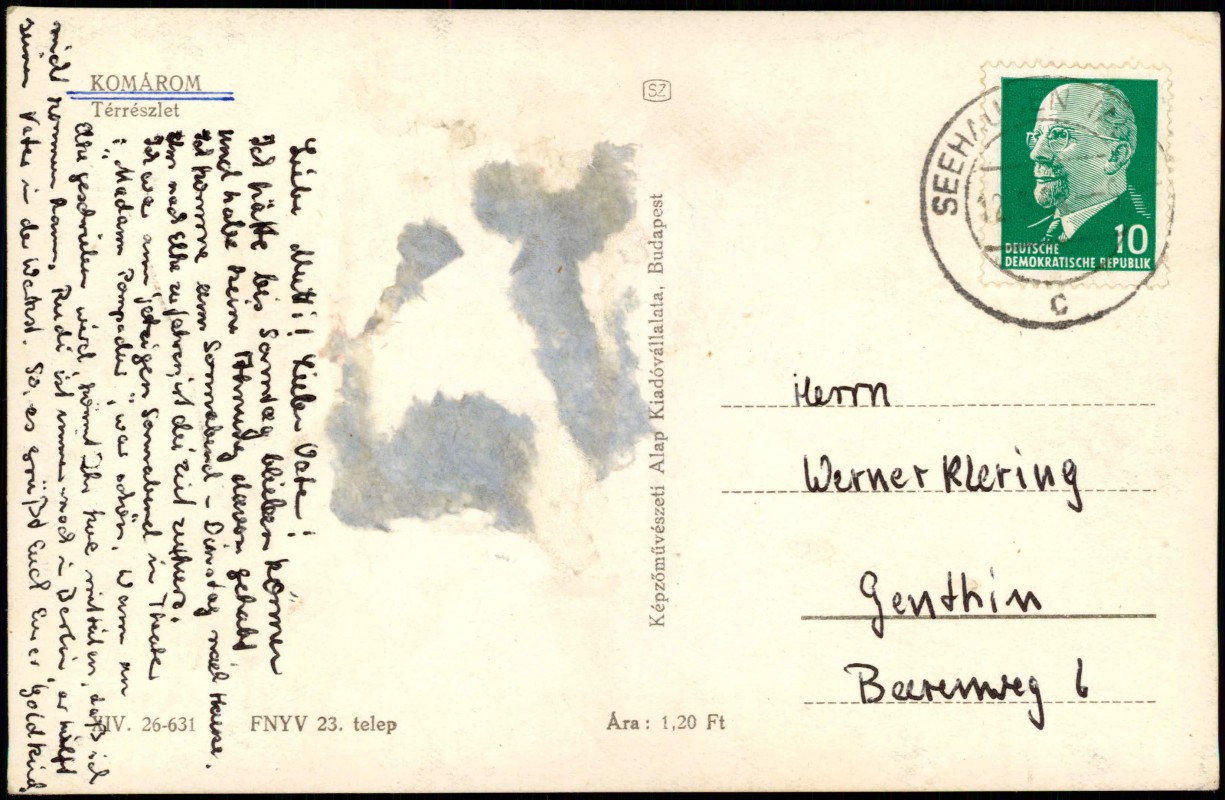 KOMÁROM
Térrészlet
SZ
SEEHAUSEN
12
c
10
DEUTSCHE
DEMOKRATISCHE REPUBLIK
Liebe Mutti! Lieber Vater!
Ich hätte bis Sonntag bleiben können
und habe keine Ahnung davon gehabt.
Ich komme am Sonnabend - Dienstag nach Hause.
nach Elke zu fahren, ist die Zeit
Ich war am Sonnabend in Theater
"Madam Pompadur", war schön. Wann
Elke geschrieben wird, könnt Ihr mitteilen, daß ich
nicht kommen kann. Rudi ist immer noch in Berlin, er hilft
seinen Vater in der Werkst. So, es grüßt Euch Euer Goldkind
Képzőművészeti Alap Kiadóvállalata, Budapest
Herrn
Werner Klering
Genthin
Beerenweg 6
26-631
FNYV 23. telep
Ára: 1,20 Ft